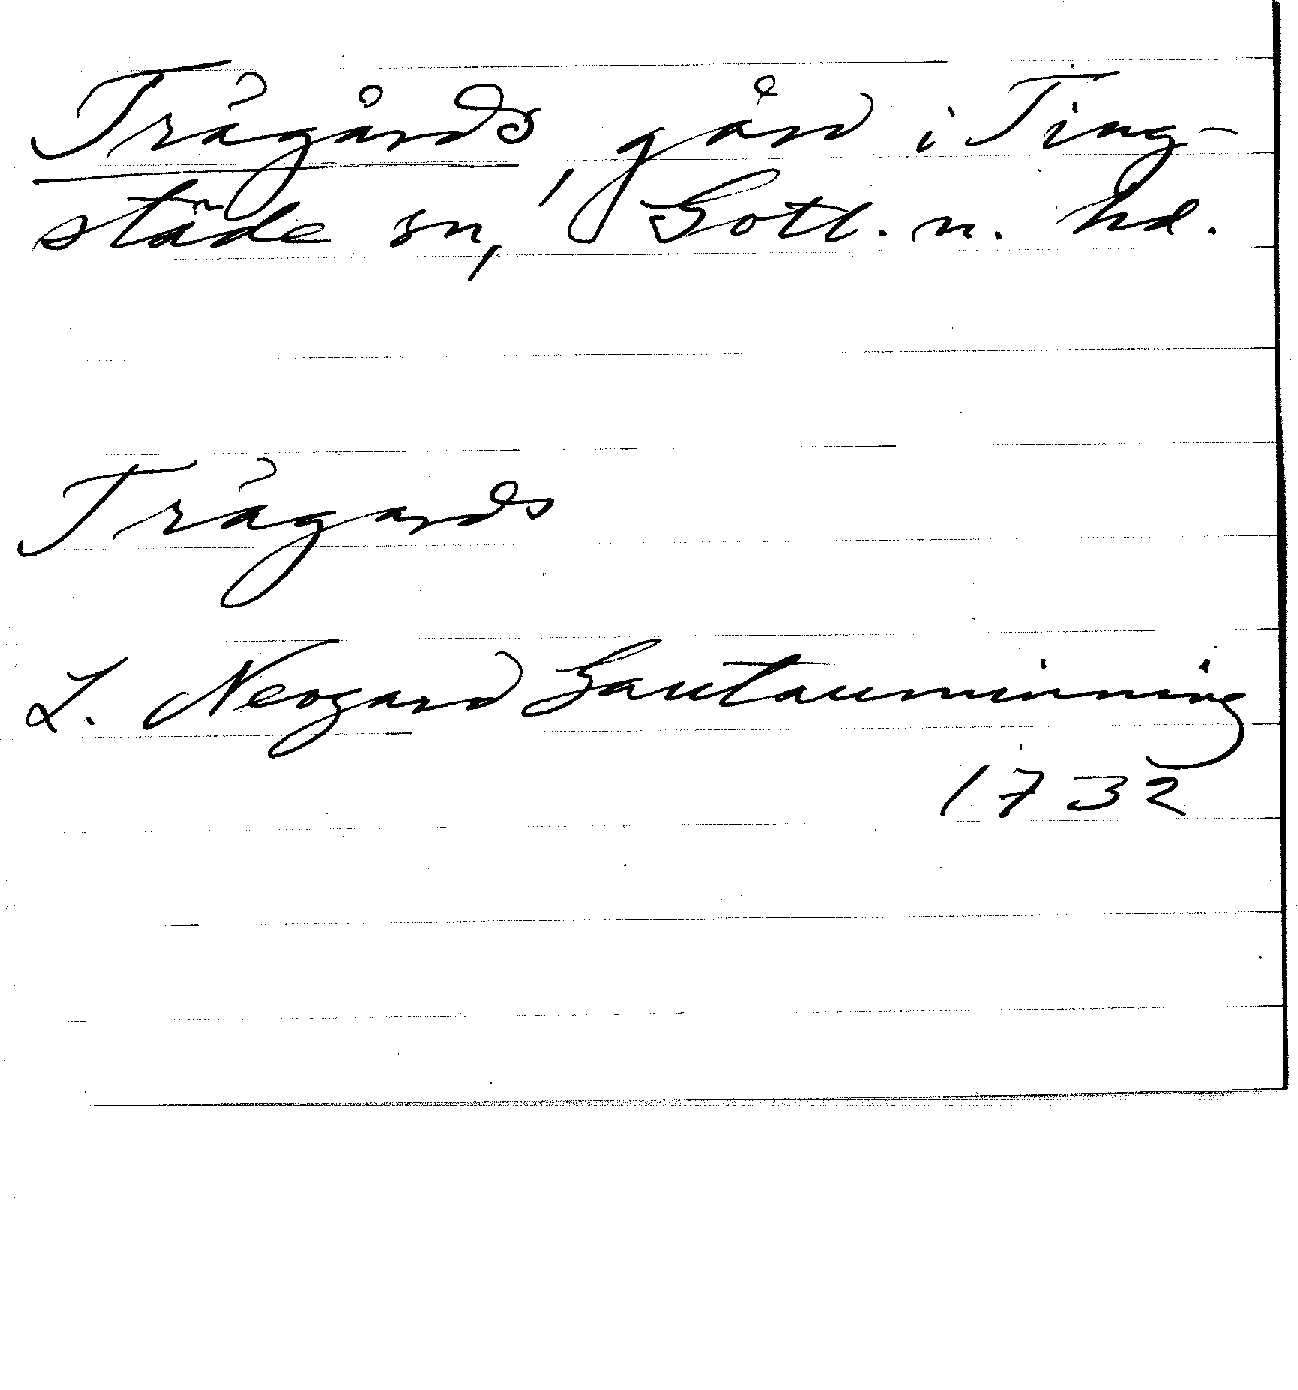 Trågårds, gård i Ting-
städe sn, Gotl. n. hd.
Trågards
L. Neogard Gautauminning
1732